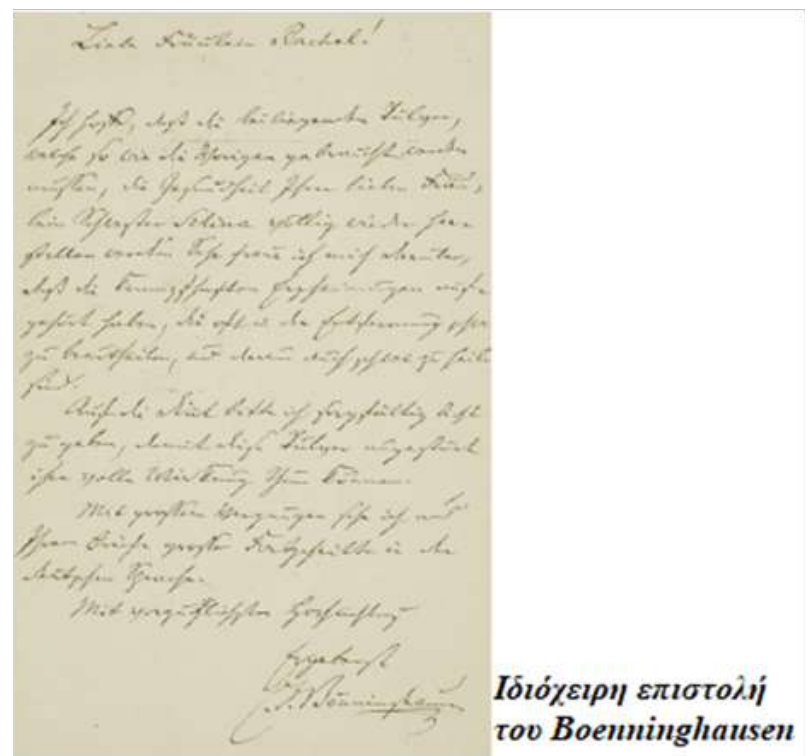 Liebe Fräulein Rachel!
Ich hoffe, daß die beiliegenden Pulver,
welche so wie die übrigen gebraucht werden
müssen, die Gesundheit Ihrer lieben Fräu-
lein Schwester Selina völlig wieder her-
stellen werden. Sehr freue ich mich darüber,
daß die krampfhaften Erscheinungen aufge-
hört haben, die oft in der Entfernung schwer
zu beurtheilen, und darum auch schwer zu heilen
sind.
Auf die Diät bitte ich sorgfältig Acht
zu geben, damit diese Pulver ungestört
ihre volle Wirkung thun können.
Mit großem Vergnügen sehe ich aus
Ihrem Briefe große Fortschritte in der
deutschen Sprache.
Mit vorzüglichster Hochachtung
Ergebenst
Bönninghausen
Ιδιόχειρη επιστολή
του Boenninghausen